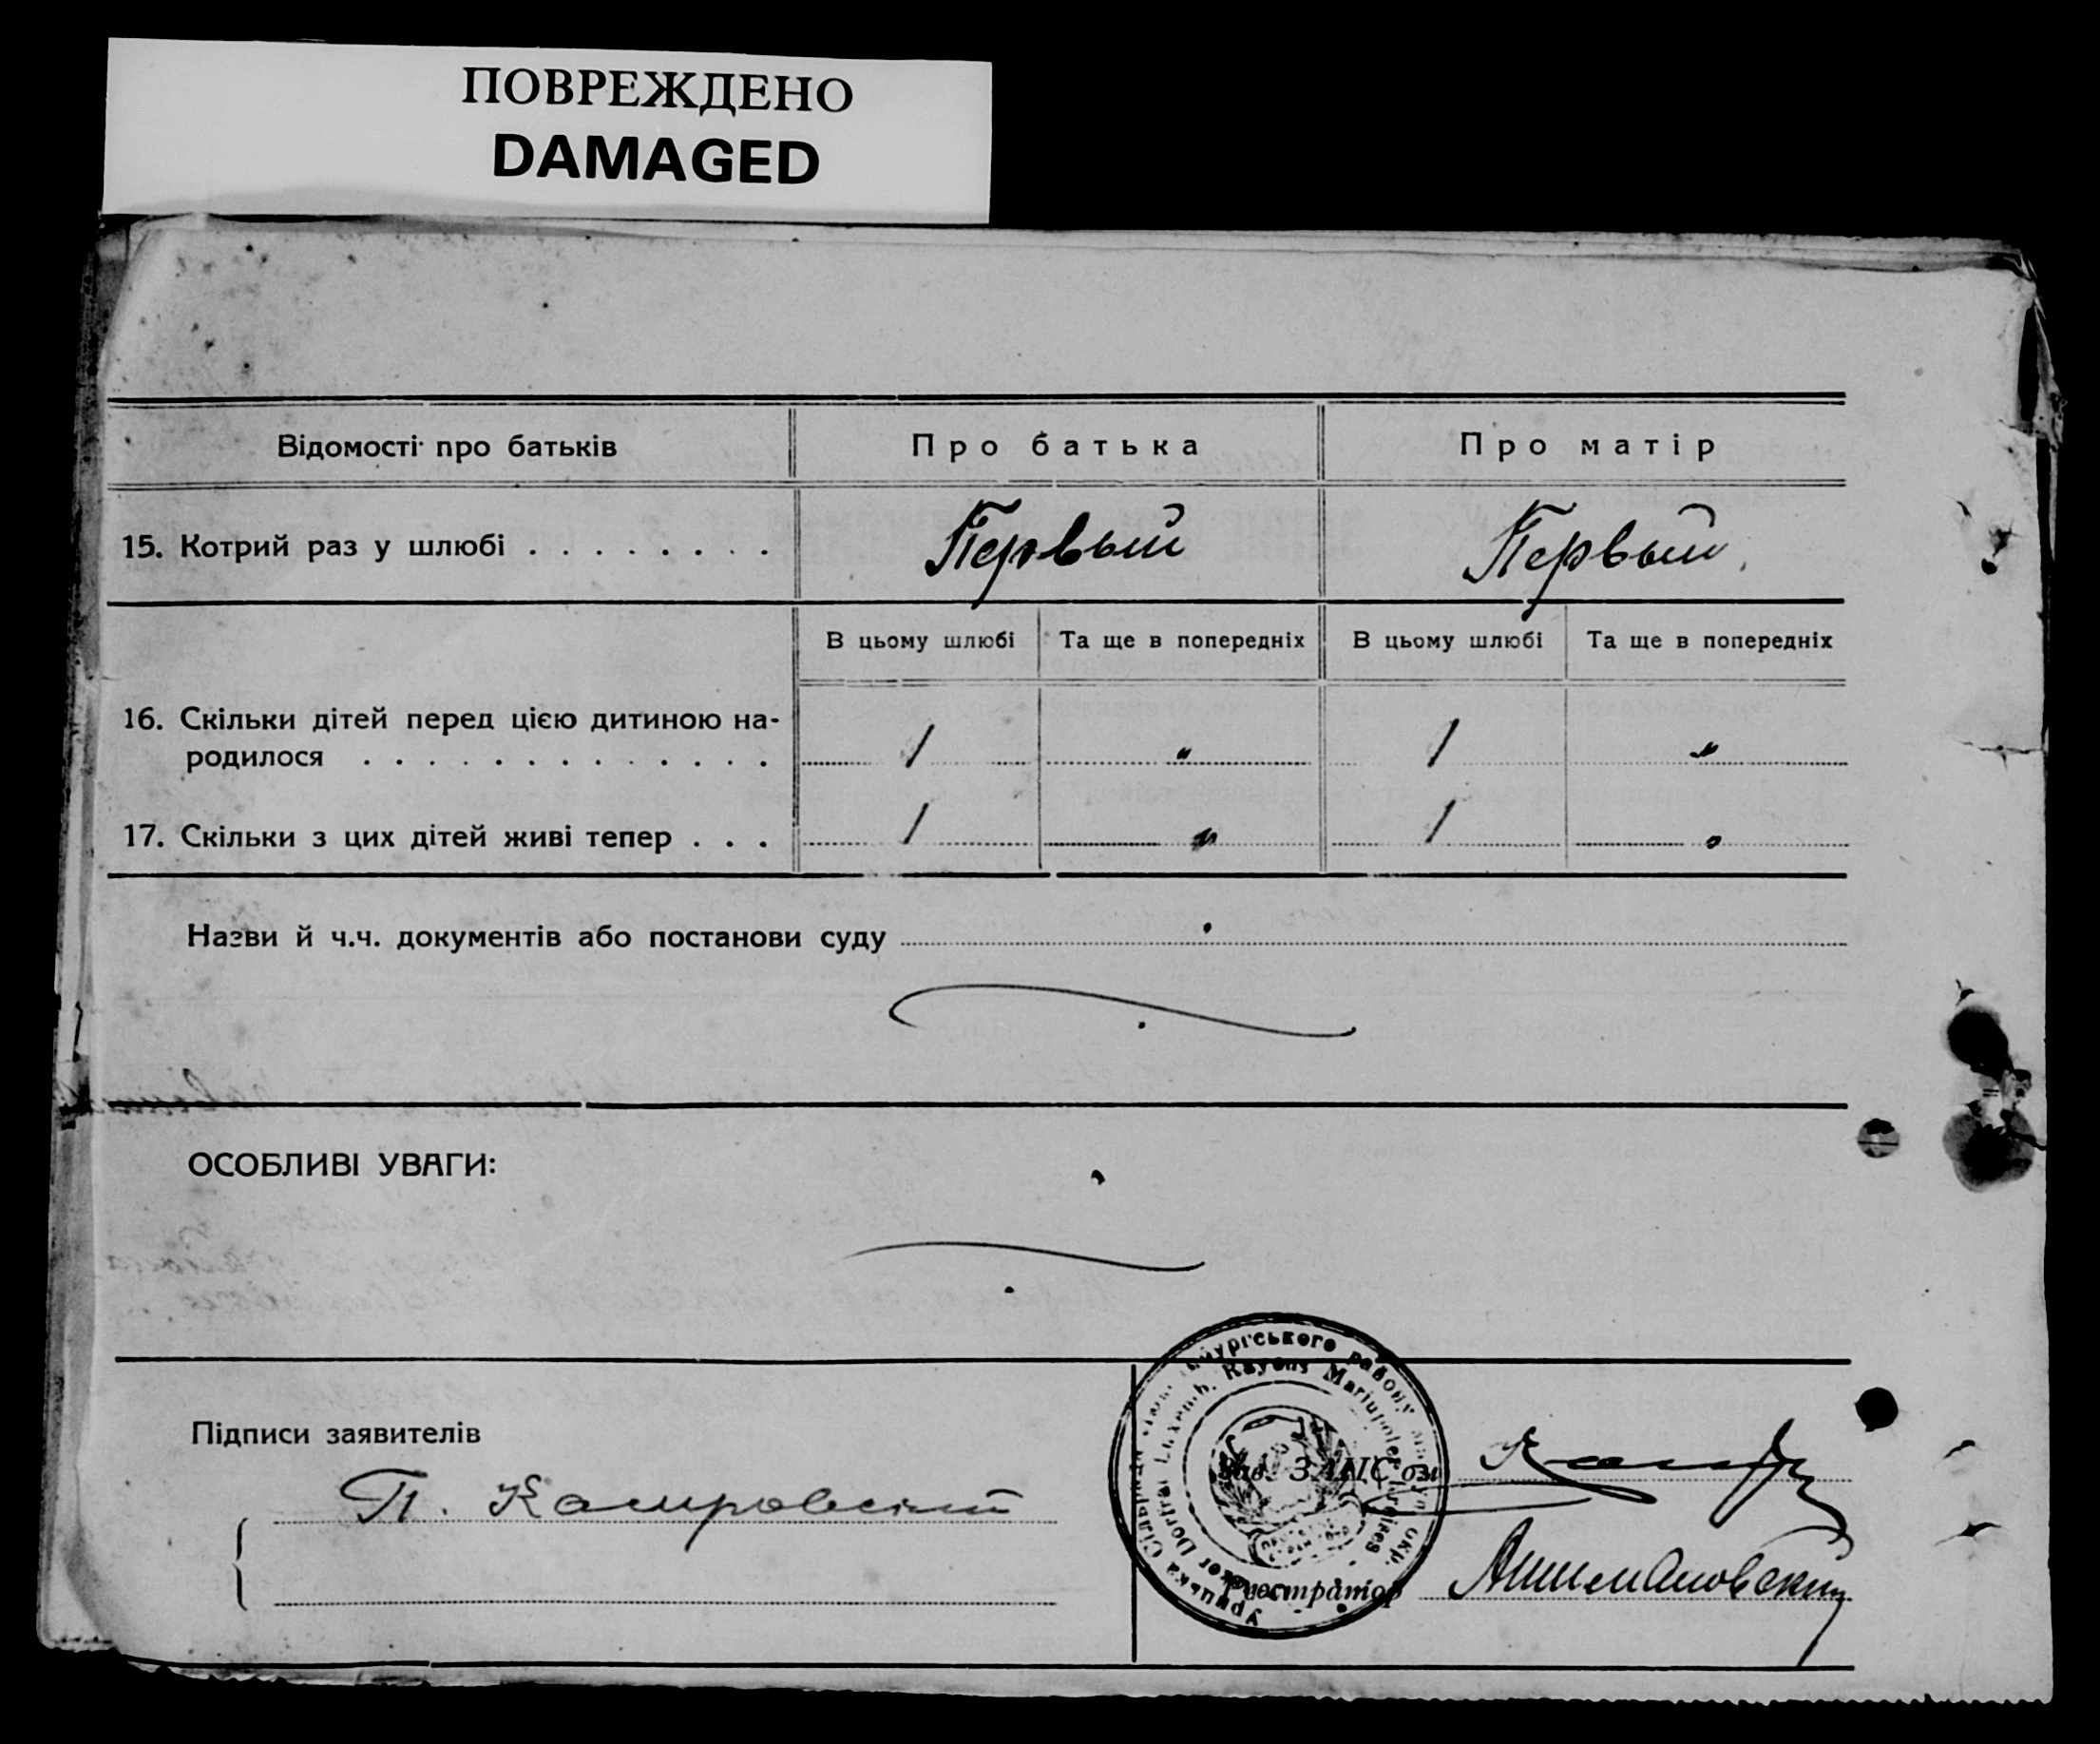 ПОВРЕЖДЕНО
DAMAGED
Відомості про батьків
Про батька
Про матір
15. Котрий раз у шлюбі . . . . . . . .
Первый
Первый
В цьому шлюбі
Та ще в попередніх
В цьому шлюбі
Та ще в попередніх
16. Скільки дітей перед цією дитиною на-
родилося . . . . . . . . . . . . .
1
"
1
"
17. Скільки з цих дітей живі тепер . . .
1
"
1
"
Назви й ч.ч. документів або постанови суду
ОСОБЛИВІ УВАГИ:
Підписи заявителів
П.
Зав. ЗАПС'ом
Реєстратор
району
Rayons Mariupoler Kreises